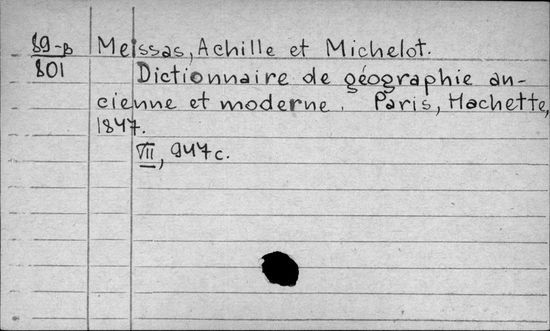 89-В Meissas, Achille et Michelot.
801 Dictionnaire de géographie an-
cienne et moderne. Paris, Hachette,
1847.
VII, 947 c.